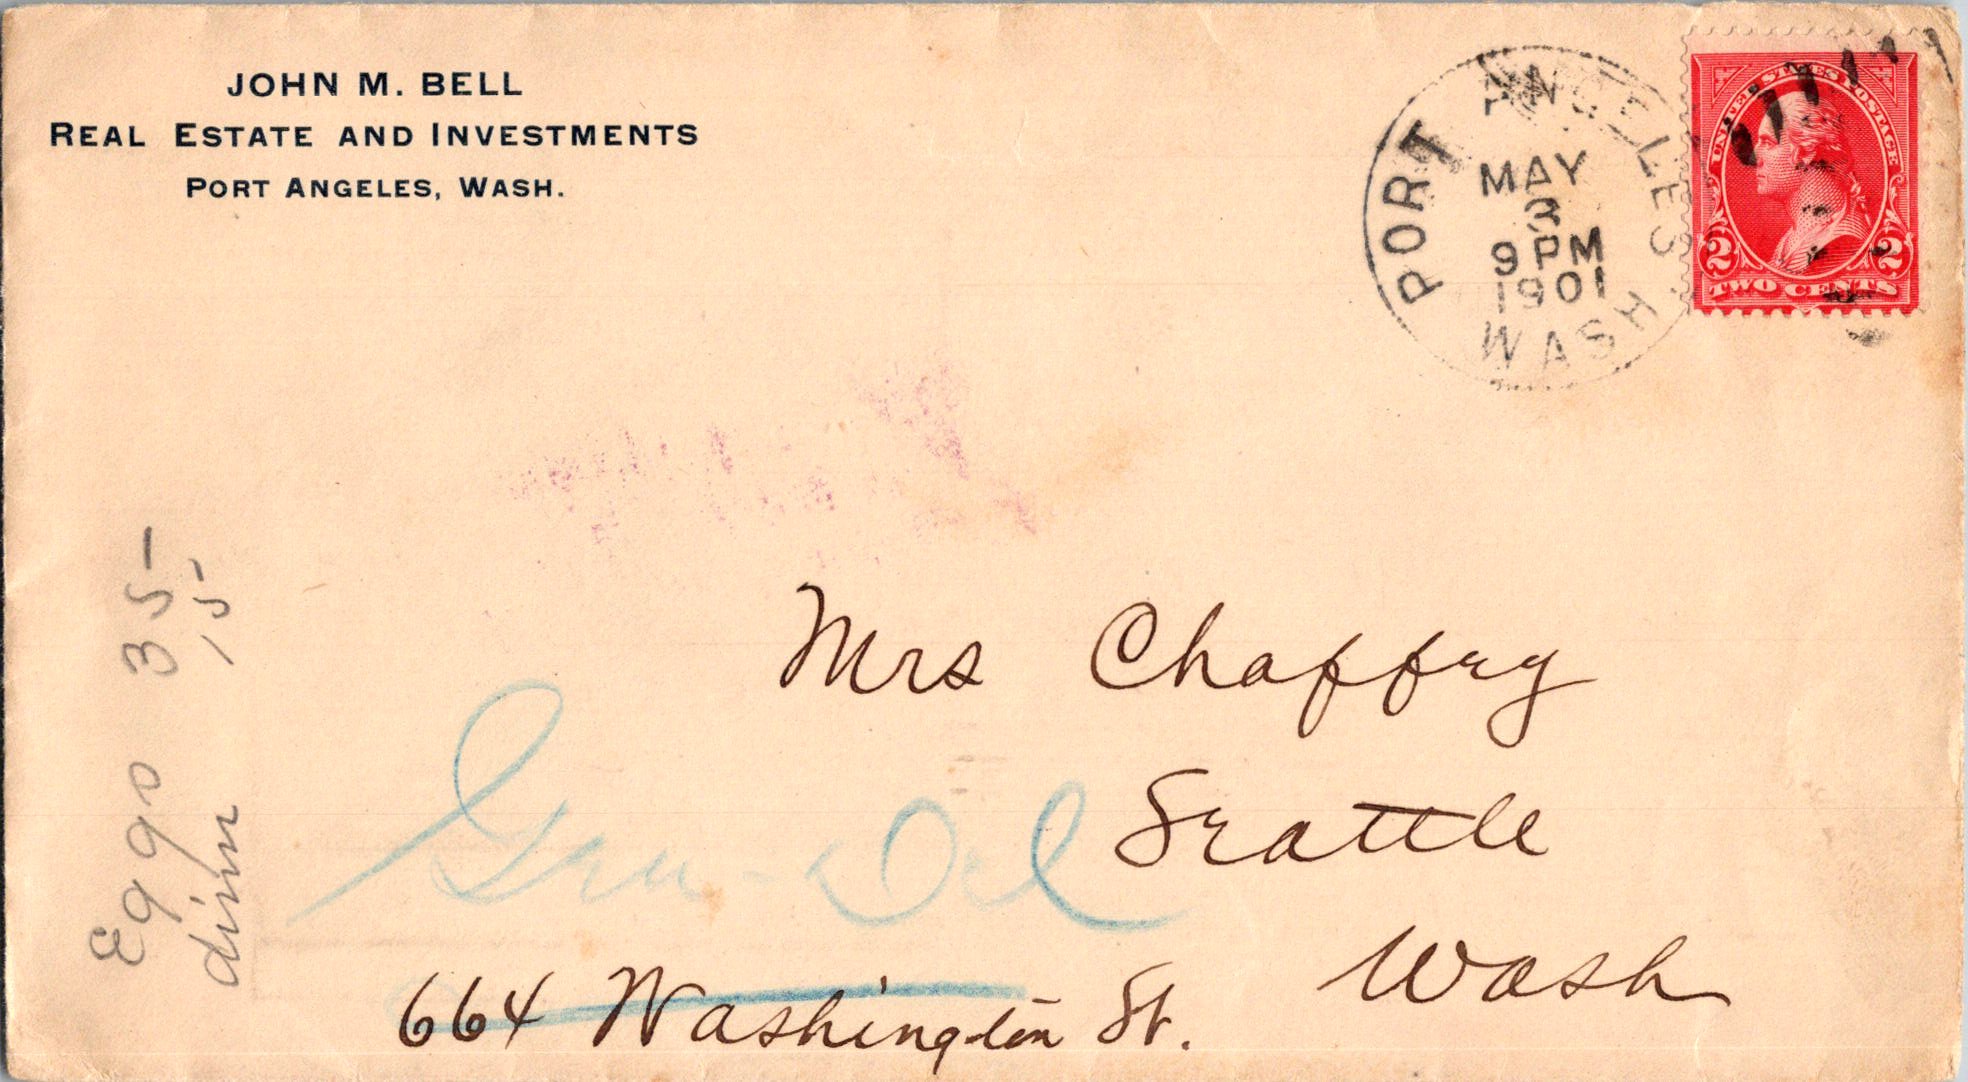 JOHN M. BELL
REAL ESTATE AND INVESTMENTS
PORT ANGELES, WASH.
PORT ANGELES WASH
MAY
3
9 PM
1901
UNITED STATES POSTAGE
2 2
TWO CENTS
Mrs Chaffey
Seattle
Wash
Gen-Del
664 Washington St.
Eggs 35-
15-